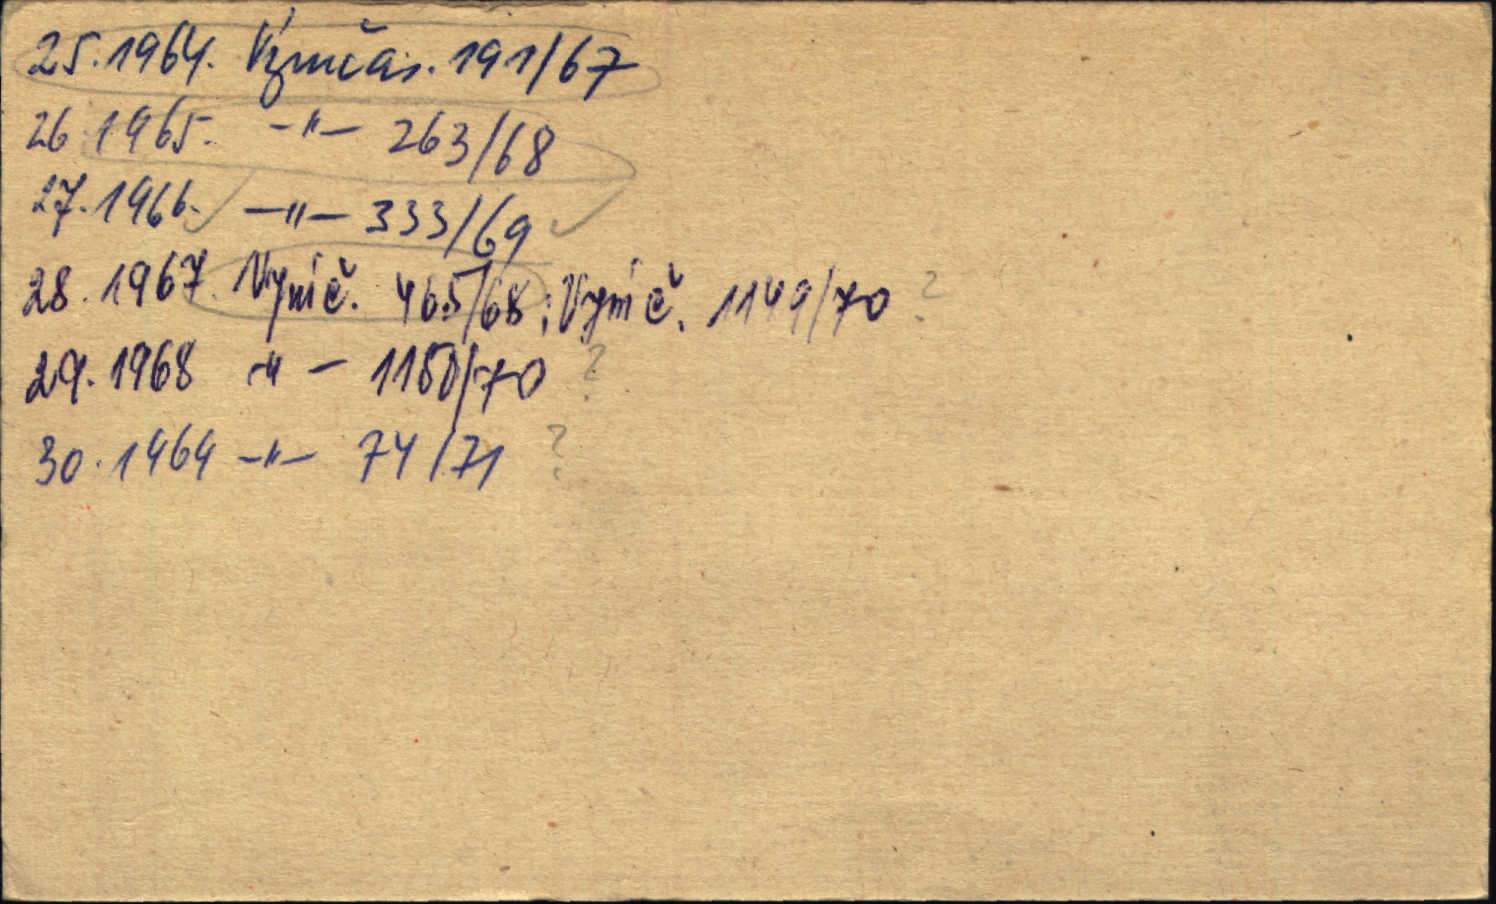 25.1964. Výmčas. 191/67
26 1965. -"- 263/68
27.1966. -"- 333/69
28.1967. Výmč. 465/68; Výmč. 1149/70 ?
29.1968 -"- 1150/70 ?
30.1969 -"- 74/71 ?